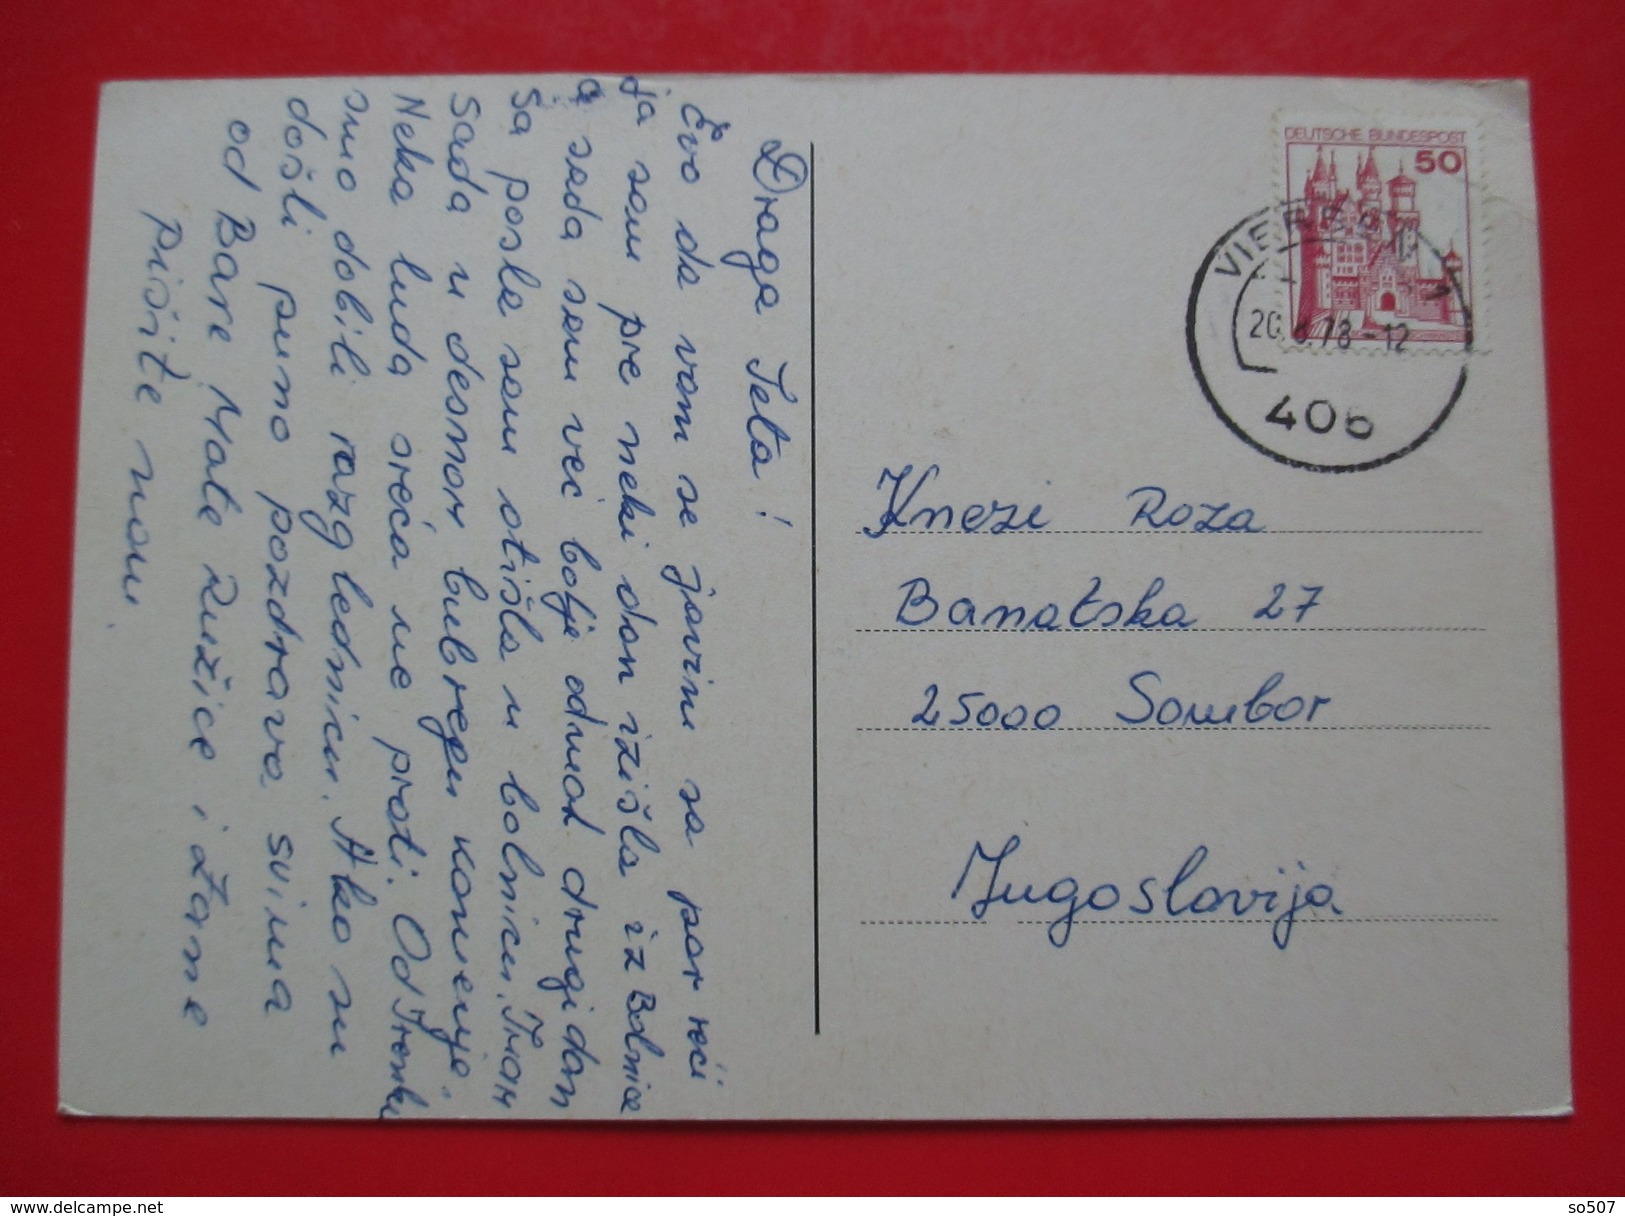 Draga Teta!
Evo da vam se javim sa par reči
ja sam pre neki dan izišla iz Bolnice
a sada sam već bolje odmah drugi dan
Sa posla sam otišla u bolnicu. Imam
Sada u desnom bubregu kamenje.
Neka luda sreća me prati. Od Tromki
smo dobili razglednicu. Ako su
došli puno pozdrava svima
od Bare Mate Ružice i Žane
Pišite nam.
DEUTSCHE BUNDESPOST
50
VIERSEN 1
20. .78-12
406
Knezi Roza
Banatska 27
25000 Sombor
Jugoslavija
so507